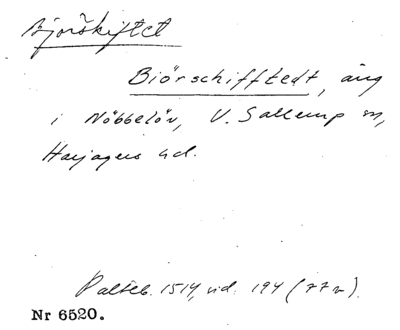 Bjorskiftet
Biörschifftedt, äng
i Nöbbelöv, V. Sallerup sn,
Harjagers hd.
Palteb. 1514, vid. 194 (77 v).
Nr 6520.